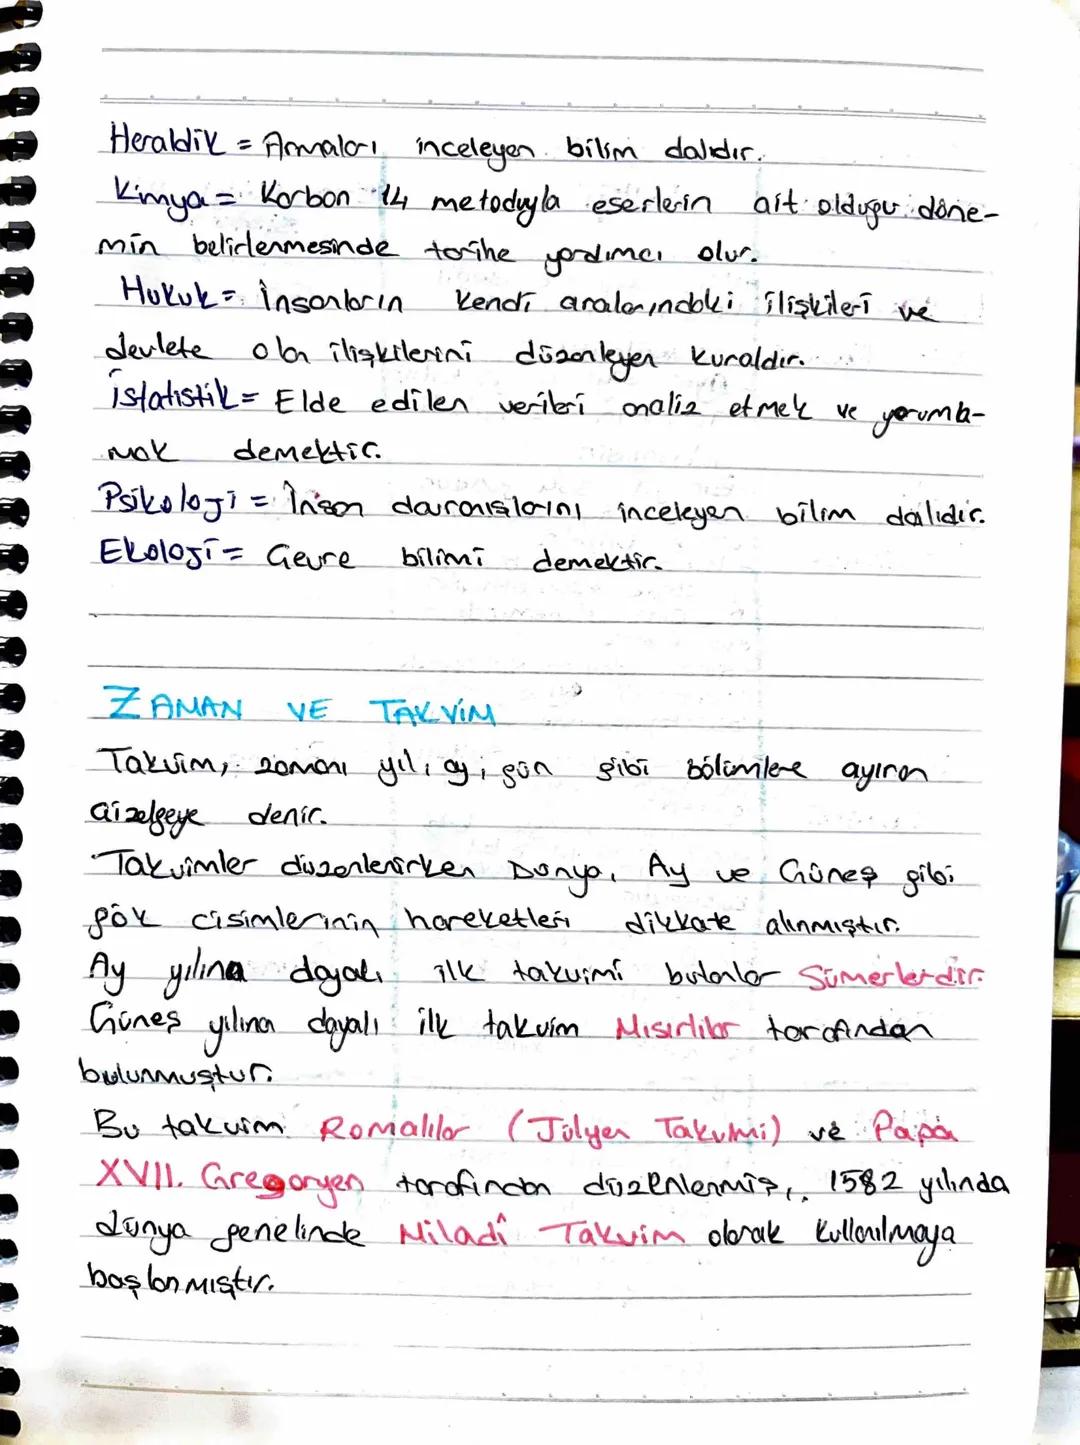 Heraldik = Armaları inceleyen bilim dalıdır.
Kimya = Karbon 14 metoduyla eserlerin ait olduğu döne-
min belirlenmesinde tarihe yardımcı olur.
Hukuk = İnsanların kendi aralarındaki ilişkileri ve
devlete olan ilişkilerini düzenleyen kuraldır.
istatistik = Elde edilen verileri analiz etmek ve yorumla-
mak demektir.
Psikoloji = İnsan davranışlarını inceleyen bilim dalıdır.
Ekoloji = Çevre bilimi demektir.
ZAMAN VE TAKVİM
Takvim, zamanı yıl, ay, gün gibi bölümlere ayıran
çizelgeye denir.
Takvimler düzenlenirken Dünya, Ay ve Güneş gibi
gök cisimlerinin hareketleri dikkate alınmıştır.
Ay yılına dayalı ilk takvimi bulanlar Sümerlerdir.
Güneş yılına dayalı ilk takvim Mısırlılar tarafından
bulunmuştur.
Bu takvim Romalılar (Jülyen Takvimi) ve Papa
XVII. Gregoryen tarafından düzenlenmiş, 1582 yılında
dünya genelinde Miladî Takvim olarak kullanılmaya
başlanmıştır.